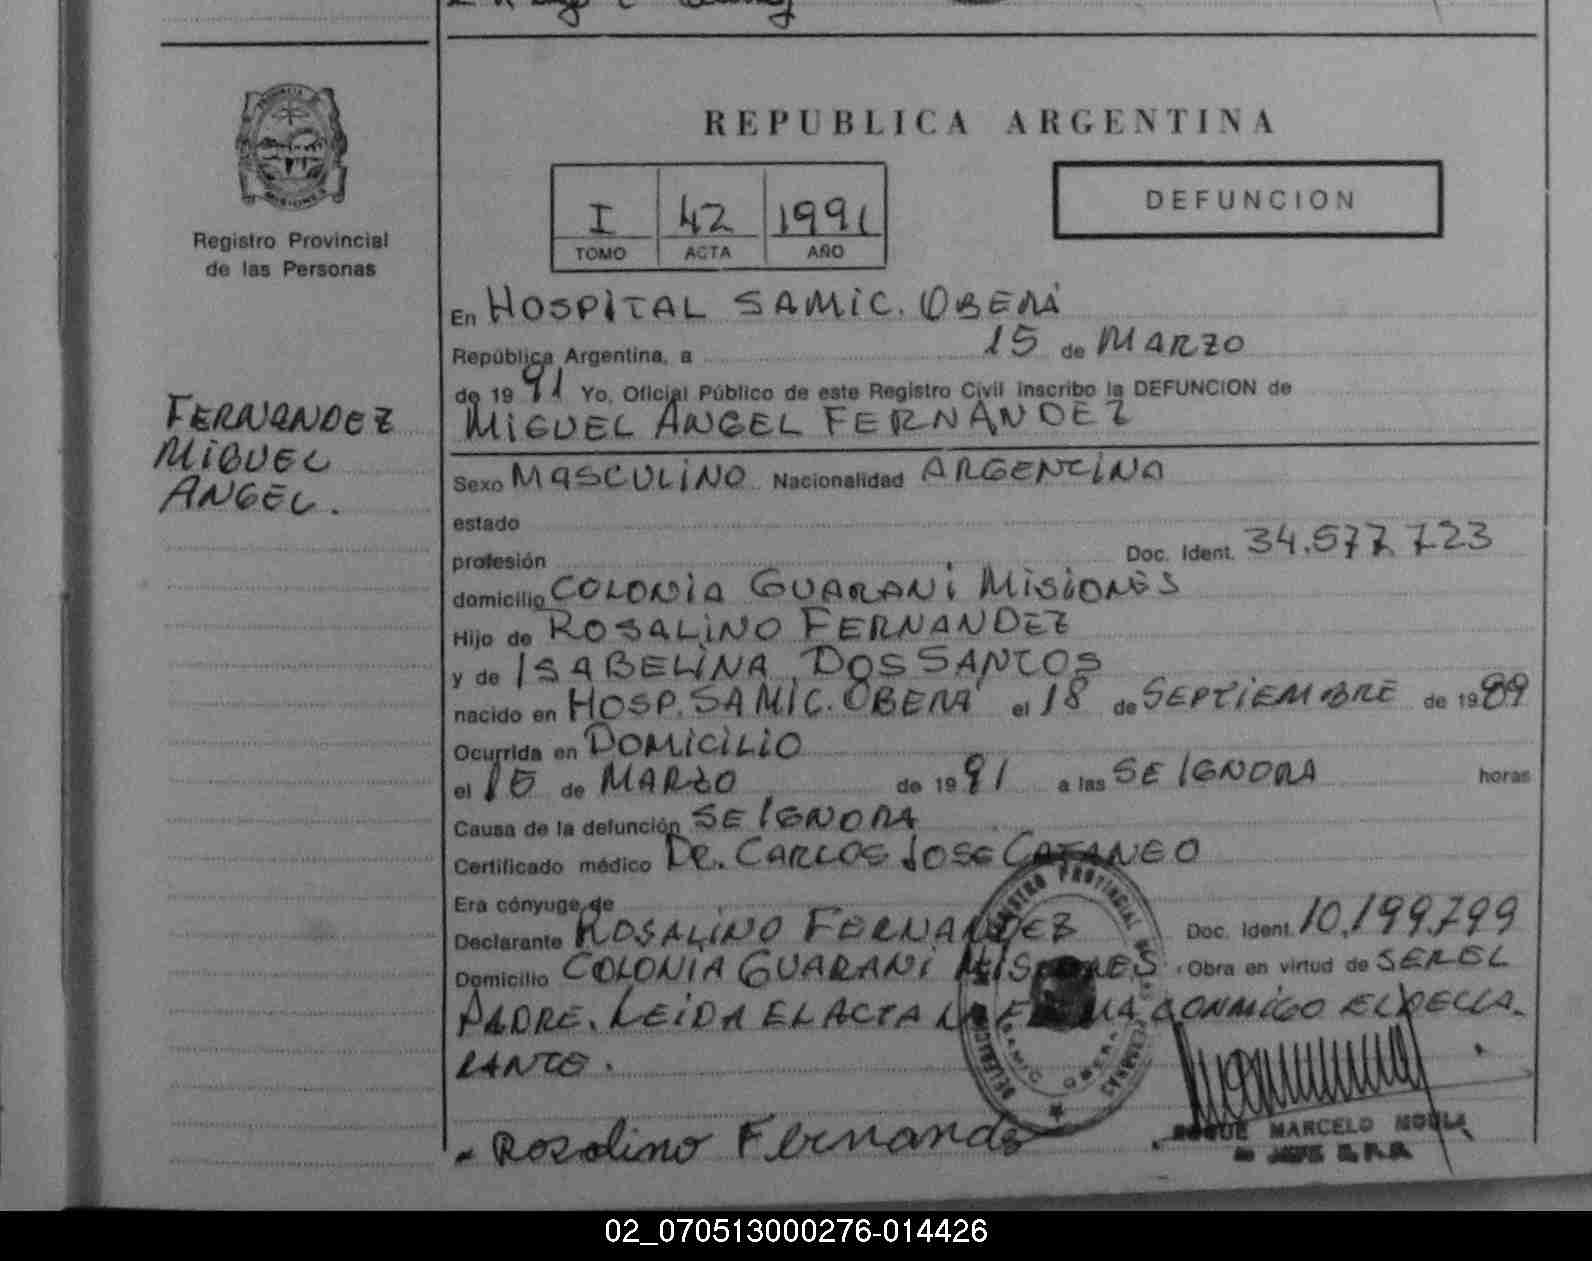 REPUBLICA ARGENTINA
PROVINCIA DE
MISIONES
Registro Provincial
de las Personas
I 42 1991
TOMO ACTA AÑO
DEFUNCION
En HOSPITAL SAMIC. OBERÁ
República Argentina, a 15 de MARZO
de 1991 Yo, Oficial Público de este Registro Civil inscribo la DEFUNCION de
MIGUEL ANGEL FERNANDEZ
FERNANDEZ
MIGUEL
ANGEL.
Sexo MASCULINO Nacionalidad ARGENTINO
estado
profesión Doc. Ident. 34.577.723
domicilio COLONIA GUARANI MISIONES
Hijo de ROSALINO FERNANDEZ
y de ISABELINA DOS SANTOS
nacido en HOSP. SAMIC. OBERÁ el 18 de SEPTIEMBRE de 1989
Ocurrida en DOMICILIO
el 15 de MARZO de 1991 a las SE IGNORA horas
Causa de la defunción SE IGNORA
Certificado médico DR. CARLOS JOSE CATANEO
Era cónyuge de
Declarante ROSALINO FERNANDEZ Doc. Ident. 10.199.799
Domicilio COLONIA GUARANI MISIONES Obra en virtud de SER EL
PADRE. LEIDA EL ACTA LA FIRMA CONMIGO EL DECLA-
RANTE.
REGISTRO PROVINCIAL DE LAS PERSONAS
DELEGACION
SAMIC OBERA
Rosalino Fernande
ROQUE MARCELO
JEFE R.P.P.
02_070513000276-014426